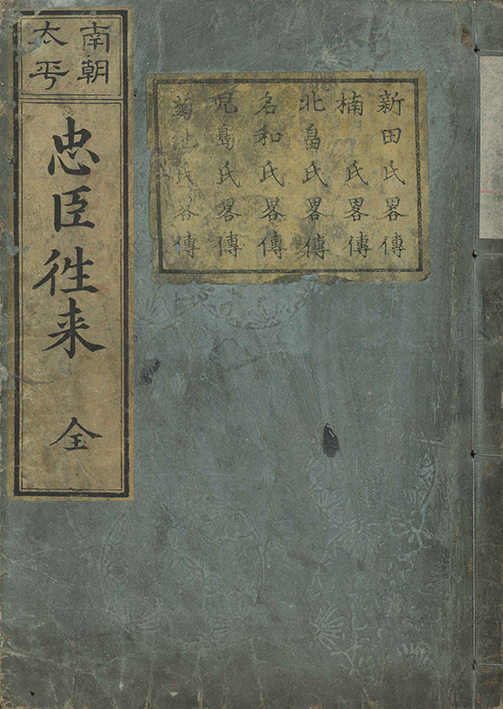 南朝
太平
忠臣徃来 全
新田氏畧傳
楠氏畧傳
北畠氏畧傳
名和氏畧傳
児島氏畧傳
菊池氏畧傳